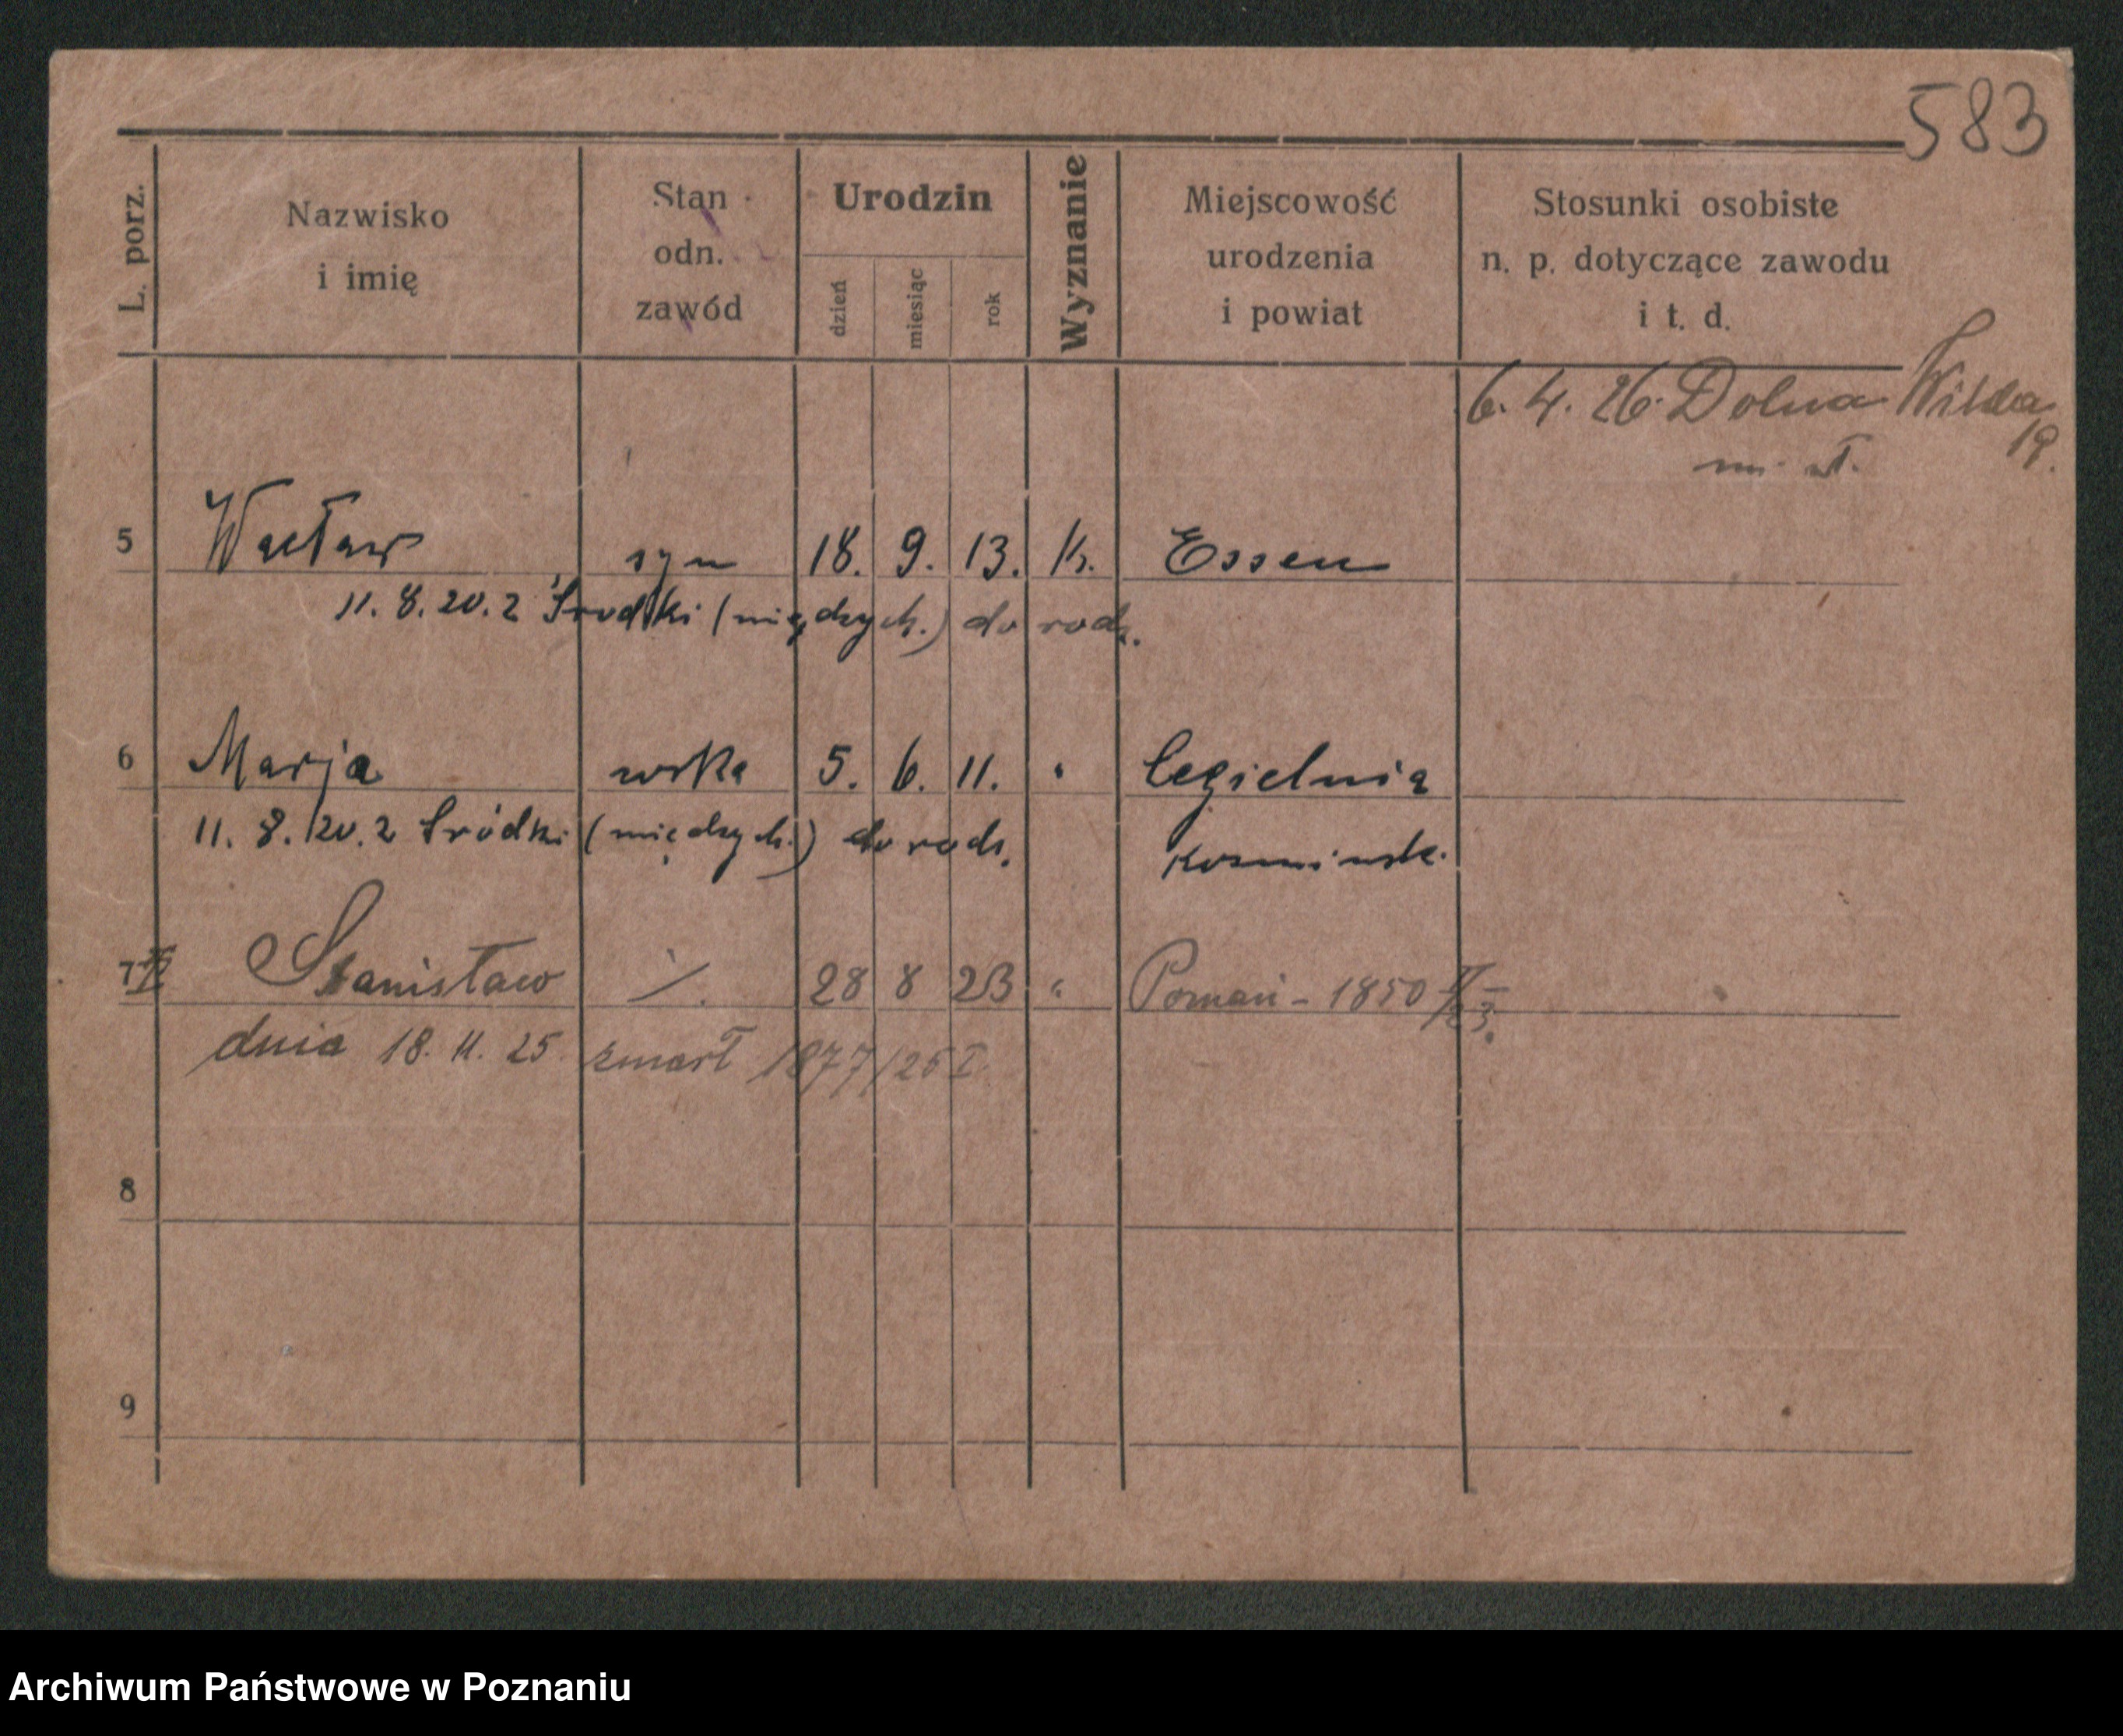 583
L. porz.
Nazwisko
i imię
Stan
odn.
zawód
Urodzin
dzień
miesiąc
rok
Wyznanie
Miejscowość
urodzenia
i powiat
Stosunki osobiste
n. p. dotyczące zawodu
i t. d.
6. 4. 26. Dolna Wilda
19.
5 Wacław syn 18. 9. 13. k. Essen
11. 8. 20. z Śrudki (międzych.) do rodz.
6 Marja crka 5. 6. 11. " Cegielnia
11. 8. 20. z Śródki (międzych.) do rodz.
7 Stanisław ./. 28 8 23 " Poznań - 1850
dnia 18. 11. 25. zmarł 1877/25 I.
8
9
Archiwum Państwowe w Poznaniu